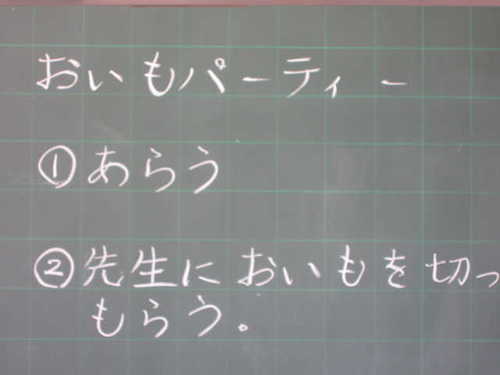 おいもパーティー
①あらう
②先生においもを切っ
もらう。